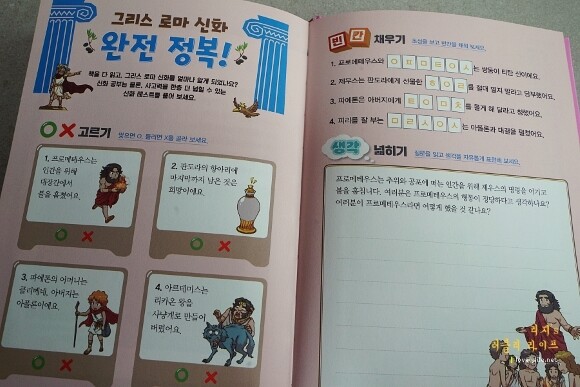 그리스 로마 신화
완전 정복!
책을 다 읽고, 그리스 로마 신화를 얼마나 알게 되었나요?
신화 공부는 물론, 사고력을 한층 더 넓힐 수 있는
신화 테스트를 풀어 보세요.
OX 고르기 맞으면 O, 틀리면 X를 골라 보세요.
1. 프로메테우스는
인간을 위해
대장간에서
불을 훔쳤어요.
2. 판도라의 항아리에
마지막까지 남은 것은
희망이에요.
3. 파에톤의 어머니는
클리메네, 아버지는
아폴론이에요.
4. 아르테미스는
리카온 왕을
사냥개로 만들어
버렸어요.
빈칸 채우기 초성을 보고 빈칸을 채워 보세요.
1. 프로메테우스와 ㅇㅍㅁㅌㅇㅅ는 쌍둥이 티탄 신이에요.
2. 제우스는 판도라에게 선물한 ㅎㅇㄹ를 절대 열지 말라고 당부했어요.
3. 파에톤은 아버지에게 ㅌㅇㅁㅊ를 몰게 해 달라고 청했어요.
4. 피리를 잘 부는 ㅁㄹㅅㅇㅅ는 아폴론과 대결을 펼쳤어요.
생각 넓히기 질문을 읽고 생각을 자유롭게 표현해 보세요.
프로메테우스는 추위와 공포에 떠는 인간을 위해 제우스의 명령을 어기고
불을 훔칩니다. 여러분은 프로메테우스의 행동이 정당하다고 생각하나요?
여러분이 프로메테우스라면 어떻게 했을 것 같나요?